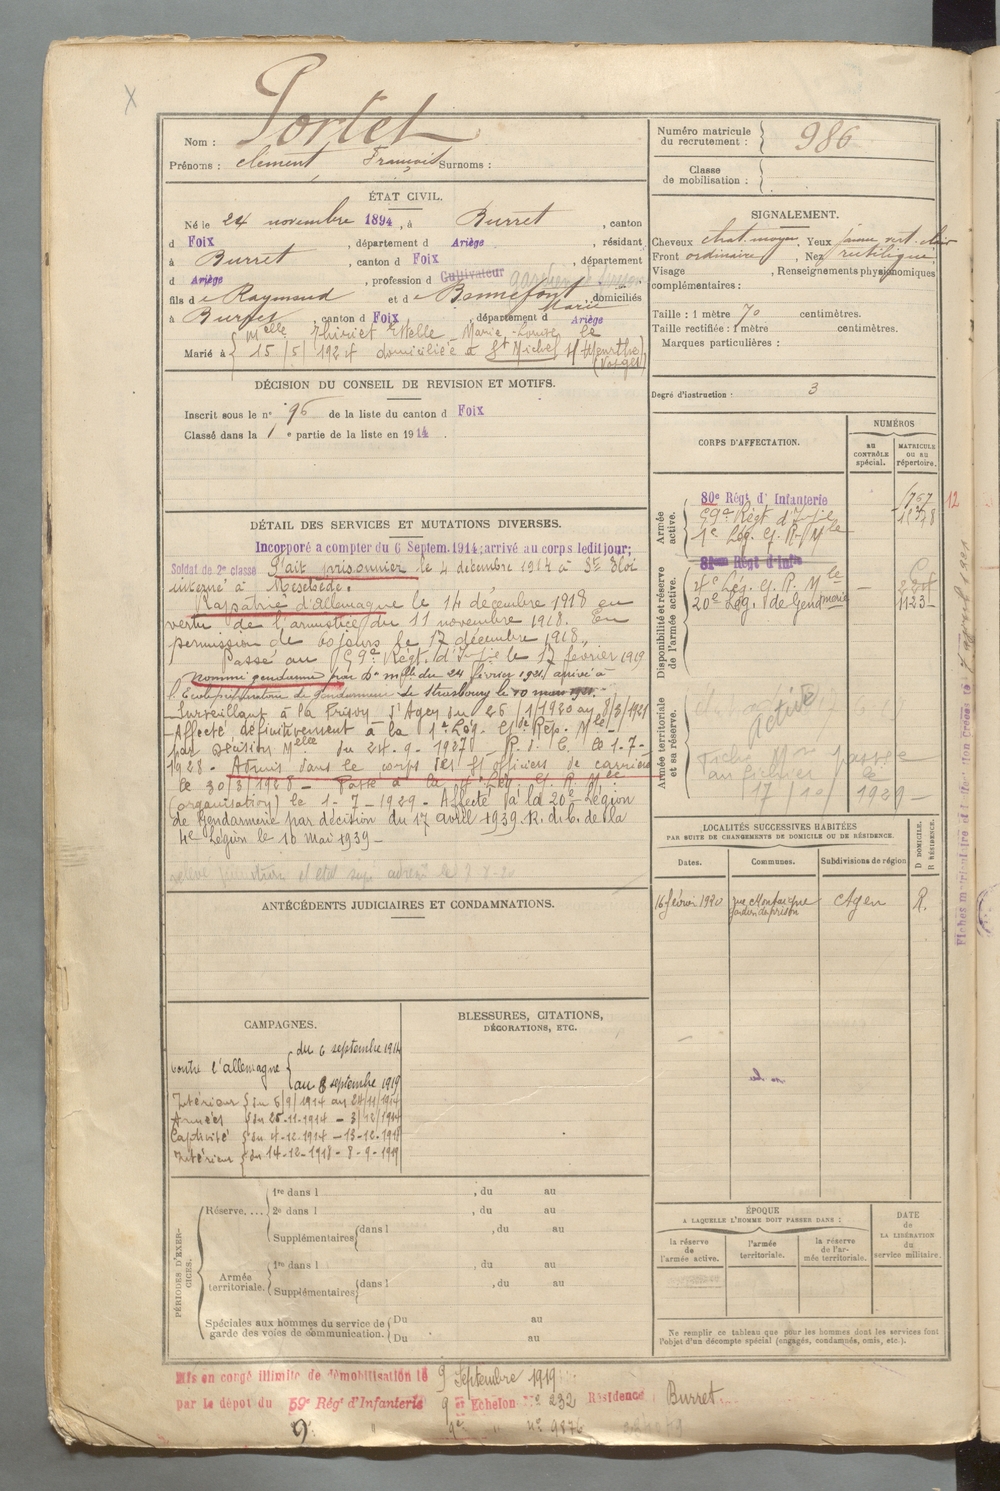 Portet
Nom :
Prénoms : clément, François Surnoms :
ÉTAT CIVIL.
Né le 24 novembre 1894, à Burret, canton
d Foix, département d Ariège, résidant
à Burret, canton d Foix, département
d Ariège, profession d Cultivateur
fils de Raymond et de Bonnefont Marie, domiciliés
à Burret, canton d Foix, département d Ariège
Marié à Melle Thiriet Estelle Marie-Louise le
15/5/1924 domiciliée à St Michel s/Meurthe
(Vosges)
DÉCISION DU CONSEIL DE REVISION ET MOTIFS.
Inscrit sous le n° 96 de la liste du canton d Foix
Classé dans la 1e partie de la liste en 1914.
DÉTAIL DES SERVICES ET MUTATIONS DIVERSES.
Incorporé à compter du 6 Septem. 1914; arrivé au corps ledit jour;
Soldat de 2e classe Fait prisonnier le 4 décembre 1914 à St Eloi
interné à Meschede.
Rapatrié d'Allemagne le 14 décembre 1918 en
vertu de l'armistice du 11 novembre 1918. En
permission de 60 jours le 17 décembre 1918.
Passé au 59e Régt. d'Infie le 17 février 1919
Nommé gendarme par Don mlle du 24 février 1921 arrivé à
l'Ecole préparatoire de gendarmerie de Strasbourg le 10 mars 1921.
Surveillant à la Prison d'Agen du 26/1/1920 au 8/3/1921
Affecté définitivement à la 1e Lég. Gde Rép. Mle
par décision Melle du 24-9-1927 - R. d. C. le 1-7-
1928 - Admis dans le corps des ss officiers de carrière
le 30/3/1928 - Passé à la 4e Lég. G. R. Mle
(organisation) le 1-7-1929 - Affecté à la 20e Légion
de Gendarmerie par décision du 17 avril 1939. R. d. C. de la
4e Légion le 16 Mai 1939 -
ANTÉCÉDENTS JUDICIAIRES ET CONDAMNATIONS.
CAMPAGNES.
contre l'allemagne { du 6 septembre 1914
au 8 septembre 1919
Intérieur { du 6/9/1914 au 24/11/1914
Armées { du 25-11-1914 - 3/12/1914
Captivité { du 4-12-1914 - 13-12-1918
Intérieur { du 14-12-1918 - 8-9-1919
BLESSURES, CITATIONS,
DÉCORATIONS, ETC.
PÉRIODES D'EXERCICES.
Réserve, ...
1re dans l , du au
2e dans l , du au
Supplémentaires { dans l , du au
Armée
territoriale.
1re dans l , du au
Supplémentaires { dans l , du au
Spéciales aux hommes du service de
garde des voies de communication.
Du au
Du au
Mis en congé illimité de démobilisation le 9 Septembre 1919
par le dépôt du 59e Régt d'Infanterie 9 et Echelon N° 232 Résidence Burret
9e " n° 9876
Numéro matricule
du recrutement : 986
Classe
de mobilisation :
SIGNALEMENT.
Cheveux chat. moyen, Yeux jaune vert. clair
Front ordinaire, Nez rectiligne
Visage , Renseignements physionomiques
complémentaires :
Taille : 1 mètre 70 centimètres.
Taille rectifiée : 1 mètre centimètres.
Marques particulières :
Degré d'instruction : 3
CORPS D'AFFECTATION.
NUMÉROS
au
CONTRÔLE
spécial.
MATRICULE
OU AU
répertoire.
Armée
active.
80e Régt d'Infanterie
59e Régt d'Infie
1e Lég. G. R. Mle
12
Disponibilité et réserve
de l'armée active.
81eme Régt d'Infie
4e Lég. G. R. Mle
20e Lég. de Gendmarie 1123
Armée territoriale
et sa réserve.
Active
Fiche Mre passée
au fichier le
17/10/1929 -
LOCALITÉS SUCCESSIVES HABITÉES
PAR SUITE DE CHANGEMENTS DE DOMICILE OU DE RÉSIDENCE.
Dates.
Communes.
Subdivisions de région
D DOMICILE.
R RÉSIDENCE.
16 février 1920 Agen R.
ÉPOQUE
A LAQUELLE L'HOMME DOIT PASSER DANS :
la réserve
de
l'armée active.
l'armée
territoriale.
la réserve
de l'ar-
mée territoriale.
DATE
de
LA LIBÉRATION
du
service militaire.
Ne remplir ce tableau que pour les hommes dont les services font
l'objet d'un décompte spécial (engagés, condamnés, omis, etc.).